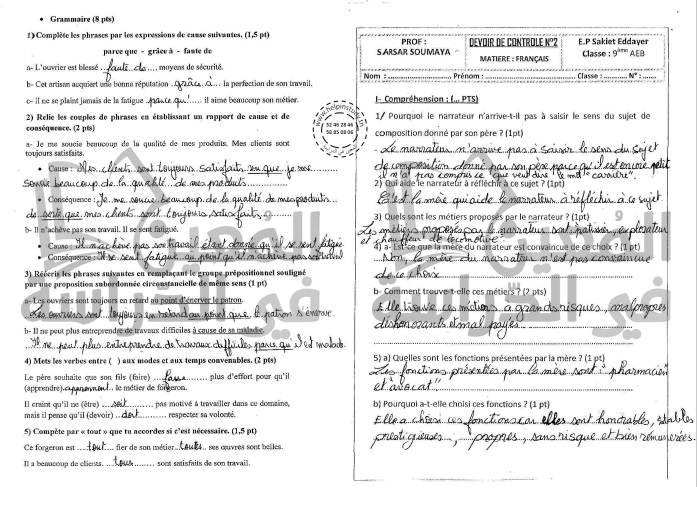 • Grammaire (8 pts)
1) Complète les phrases par les expressions de cause suivantes. (1,5 pt)
parce que - grâce à - faute de
a- L'ouvrier est blessé ..faute de.... moyens de sécurité.
b- Cet artisan acquiert une bonne réputation .grâce.à.... la perfection de son travail.
c- Il ne se plaint jamais de la fatigue .parce qu'.... il aime beaucoup son métier.
2) Relie les couples de phrases en établissant un rapport de cause et de
conséquence. (2 pts)
a- Je me soucie beaucoup de la qualité de mes produits. Mes clients sont
toujours satisfaits.
• Cause : Mes clients sont toujours satisfaits vu que je me
soucie beaucoup de la qualité de mes produits
• Conséquence : Je me soucie beaucoup de la qualité de mes produits
de sorte que mes clients sont toujours satisfaits
b- Il n'achève pas son travail. Il se sent fatigué.
• Cause : Il n'achève pas son travail étant donné qu'il se sent fatigué
• Conséquence : Il se sent fatigué au point qu'il n'achève pas son travail
3) Réécris les phrases suivantes en remplaçant le groupe prépositionnel souligné
par une proposition subordonnée circonstancielle de même sens (1 pt)
a- Les ouvriers sont toujours en retard au point d'énerver le patron.
Les ouvriers sont toujours en retard au point que le patron s'énerve.
b- Il ne peut plus entreprendre de travaux difficiles à cause de sa maladie.
Il ne peut plus entreprendre de travaux difficiles parce qu'il est malade.
4) Mets les verbes entre ( ) aux modes et aux temps convenables. (2 pts)
Le père souhaite que son fils (faire) ....fasse...... plus d'effort pour qu'il
(apprendre).apprennent.. le métier de forgeron.
Il craint qu'il ne (être) ....soit........ pas motivé à travailler dans ce domaine,
mais il pense qu'il (devoir) ..doit......... respecter sa volonté.
5) Compète par « tout » que tu accordes si c'est nécessaire. (1,5 pt)
Ce forgeron est ....tout.... fier de son métier...toutes.. ses œuvres sont belles.
Il a beaucoup de clients. ..Tous......... sont satisfaits de son travail.
www.helpinstudy.tn
52 46 28 46
58 85 08 06
PROF :
SARSAR SOUMAYA
DEVOIR DE CONTROLE N°2
MATIERE : FRANÇAIS
E.P Sakiet Eddayer
Classe : 9ème AEB
Nom : .......................... Prénom : .......................... Classe : ............ N° : ......
I- Compréhension : (... PTS)
1/ Pourquoi le narrateur n'arrive-t-il pas à saisir le sens du sujet de
composition donné par son père ? (1pt)
- Le narrateur n'arrive pas à saisir le sens du sujet
de composition donné par son père parce qu'il est encore petit
il n'a pas compris ce que veut dire le mot "carrière".
2) Qui aide le narrateur à réfléchir à ce sujet ? (1pt)
C'est la mère qui aide le narrateur à réfléchir à ce sujet
3) Quels sont les métiers proposés par le narrateur ? (1pt)
Les métiers proposés par le narrateur sont pâtissier, explorateur
et chauffeur de locomotive.
4) a- Est-ce que la mère du narrateur est convaincue de ce choix ? (1 pt)
Non, la mère du narrateur n'est pas convaincue
de ce choix
b- Comment trouve-t-elle ces métiers ? (2 pts)
Elle trouve ces métiers à grands risques, malpropres
déshonorants et mal payés
5) a) Quelles sont les fonctions présentées par la mère ? (1 pt)
Les fonctions présentées par la mère sont "pharmacien"
et "avocat"
b) Pourquoi a-t-elle choisi ces fonctions ? (1 pt)
Elle a choisi ces fonctions car elles sont honorables, stables
prestigieuses, propres, sans risque et bien rémunérées.